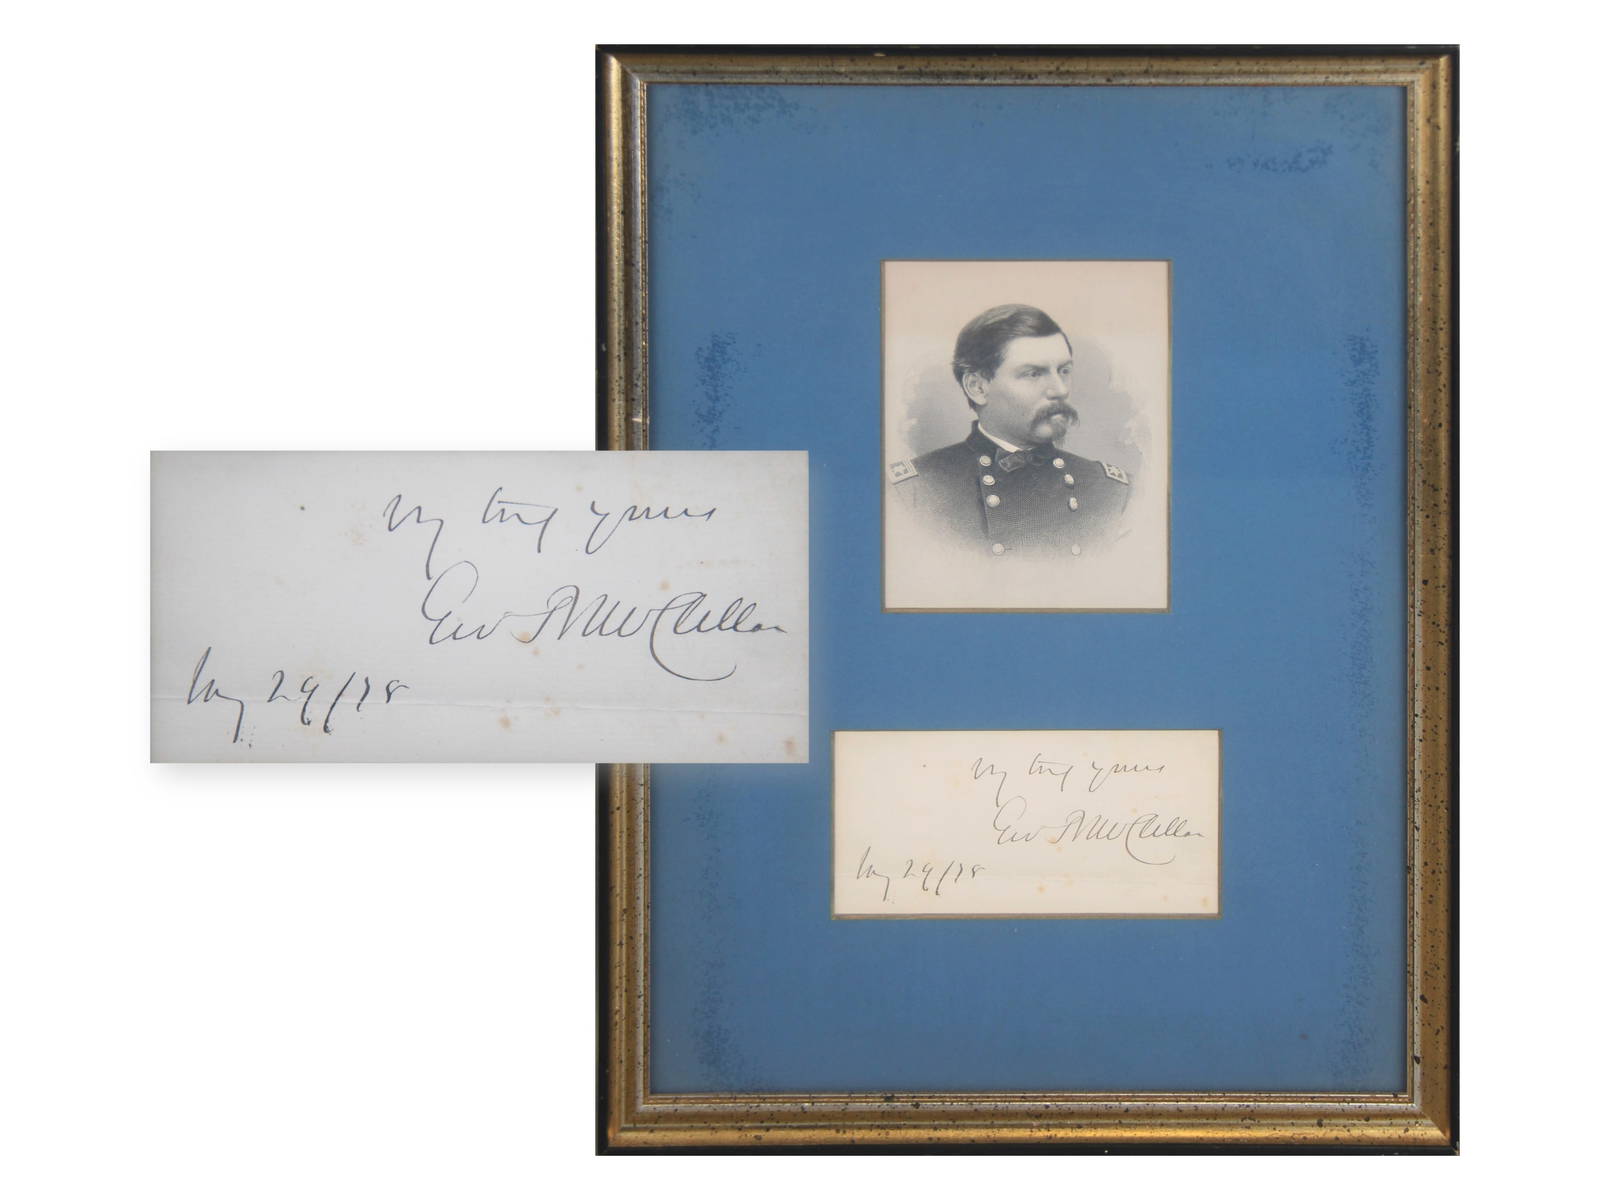 Very truly yours
Geo B McClellan
May 29/78
Very truly yours
Geo B McClellan
May 29/78